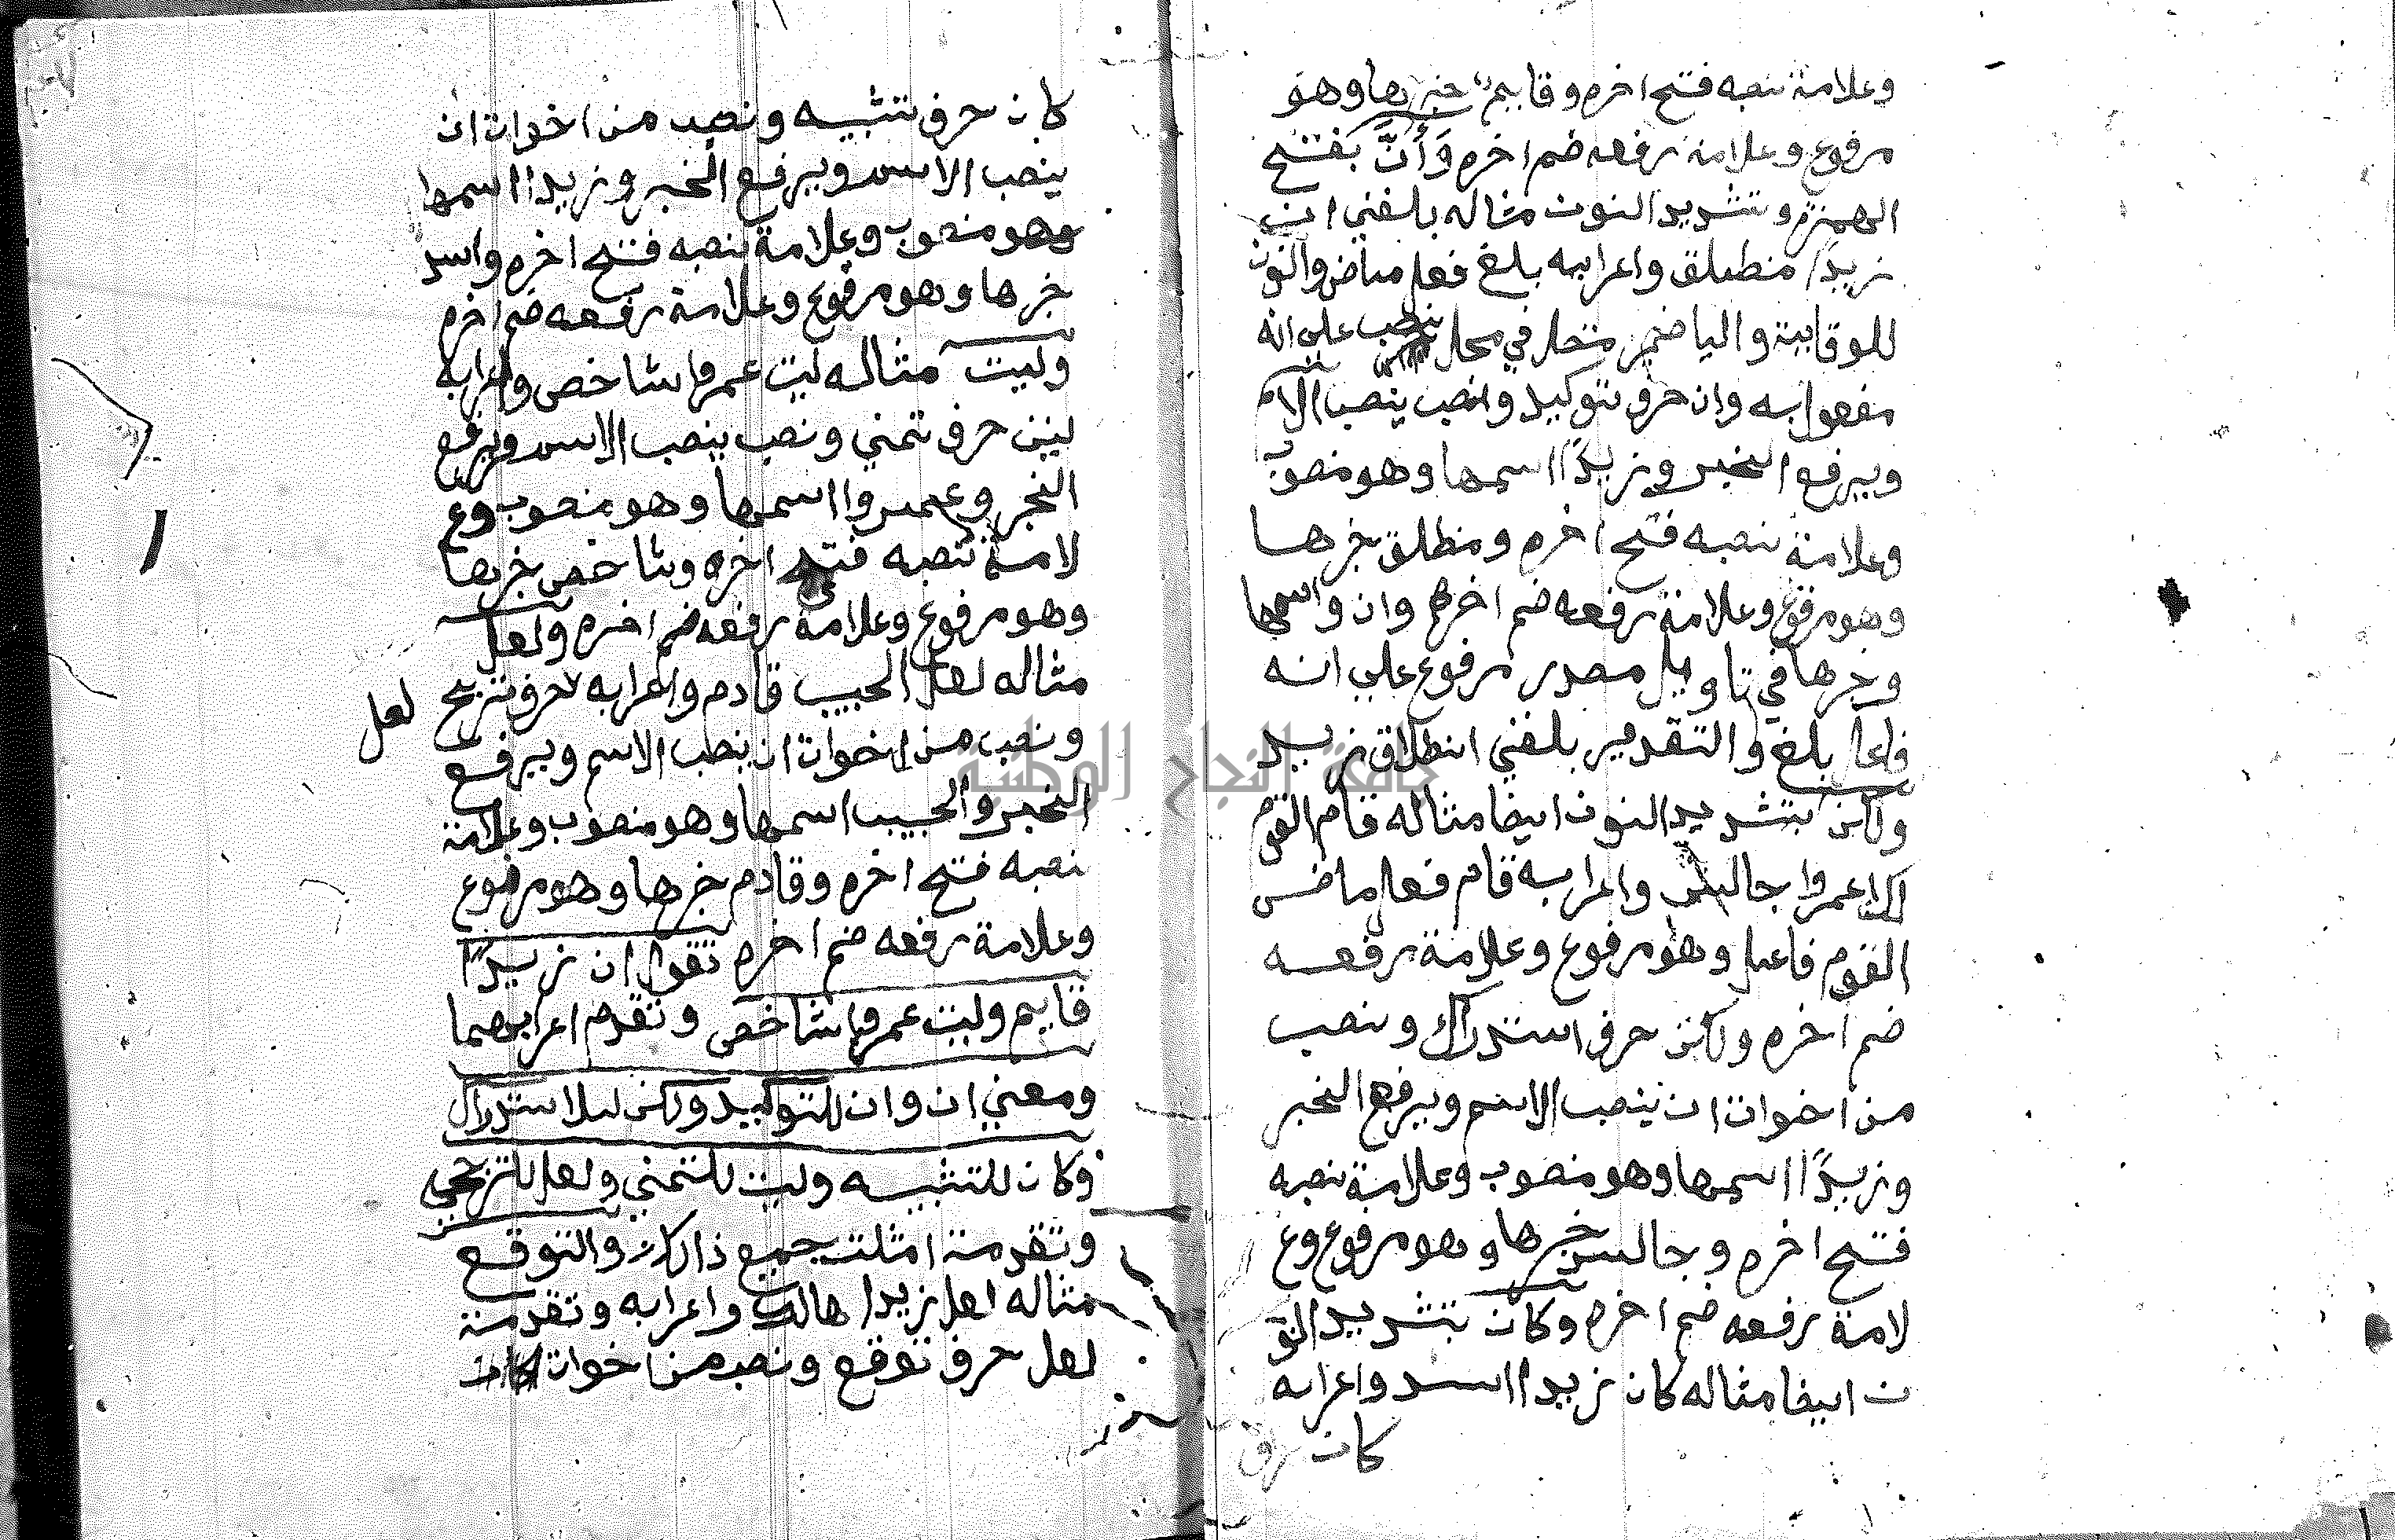 وعلامة نصبه فتح اخره وقايم خبرها وهو
مرفوع وعلامة رفعه ضم اخره وَأَنَّ بفتح
الهمزة وتشديد النون مثاله بلغني ان
زيدا منطلق واعرابه بلغ فعل ماض والنون
للوقاية واليا ضمير متصل في محل نصب على انه
مفعول به وان حرف توكيد ونصب ينصب الاسم
ويرفع الخبر وزيدًا اسمها وهو منصوب
وعلامة نصبه فتح اخره ومنطلق خبرها
وهو مرفوع وعلامة رفعه ضم اخره وان واسمها
وخبرها في تاويل مصدر مرفوع علي انه
فاعل بلغ والتقدير بلغني انطلاق زيد
ولاكن بتشديد النون ايضا مثاله قام القوم
لاكن عمروا جالس واعرابه قام فعل ماض
القوم فاعل وهو مرفوع وعلامة رفعه
ضم اخره ولاكن حرف استدراك ونصب
من اخوات ان ينصب الاسم ويرفع الخبر
وزيدًا اسمها وهو منصوب وعلامة نصبه
فتح اخره وجالس خبرها وهو مرفوع وع
لامة رفعه ضم اخره وكان بتشديد النو
ن ايضا مثاله كان زيدا اسد واعرابه
كان حرف
كان حرف تشبيه ونصب من اخوات ان
ينصب الاسم ويرفع الخبر وزيدا اسمها
وهو منصوب وعلامة نصبه فتح اخره واسد
خبرها وهو مرفوع وعلامة رفعه ضم اخره
وليت مثاله ليت عمروا شاخص واعرابه
ليت حرف تمني ونصب ينصب الاسم ويرفع
الخبر وعمروا اسمها وهو منصوب وع
لامة نصبه فتح اخره وشاخص خبرها
وهو مرفوع وعلامة رفعه ضم اخره ولعل
مثاله لعل الحبيب قادم واعرابه حرف ترج
لعل
ونصب من اخوات ان ينصب الاسم ويرفع
الخبر والحبيب اسمها وهو منصوب وعلامة
نصبه فتح اخره وقادم خبرها وهو مرفوع
وعلامة رفعه ضم اخره تقول ان زيدًا
قايم وليت عمروا شاخص وتقدم اعرابهما
ومعني ان وان للتوكيد ولاكن للاستدراك
وكان للتشبيه وليت للتمني ولعل للترجي
وتقدمت امثلت جميع ذالك والتوقع
مثاله لعل زيدا هالك واعرابه وتقدمت
لعل حرف توقع ونصب من اخوات كان
جامعة النجاح الوطنية